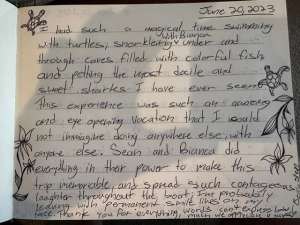 June 20, 2023
I had such a magical time swimming
with turtles, snorkeling with Bianca under and
through caves filled with colorful fish
and petting the most docile and
sweet sharks I have ever seen.
This experience was such an amazing
and eye opening vacation that I would
not immagine doing anywhere else, with
anyone else. Sean and Bianca did
everything in their power to make this
trip memorable, and spread such contageous
laughter throughout the boat; Im probably
leaving with permanent smile lines on my
face. Thank you for everything, words cant express how
much we